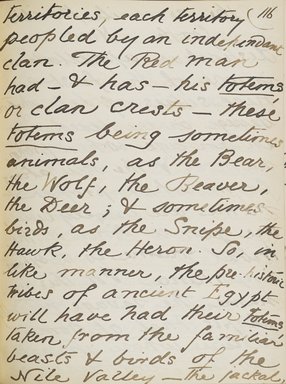 territories, each territory (116
peopled by an independent
clan. The Red man
had – & has – his totems,
or clan crests – these
totems being sometimes
animals, as the Bear,
the Wolf, the Beaver,
the Deer; & sometimes
birds, as the Snipe, the
Hawk, the Heron. So, in
like manner, the pre-historic
tribes of ancient Egypt
will have had their totems
taken from the familiar
beasts & birds of the
Nile Valley – the jackal,